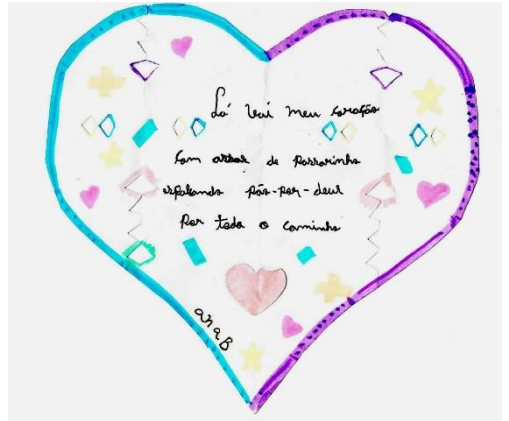 Lá vai meu coração
Com asas de Passarinho
espalhando pão-por-deus
Por todo o caminho
ana B